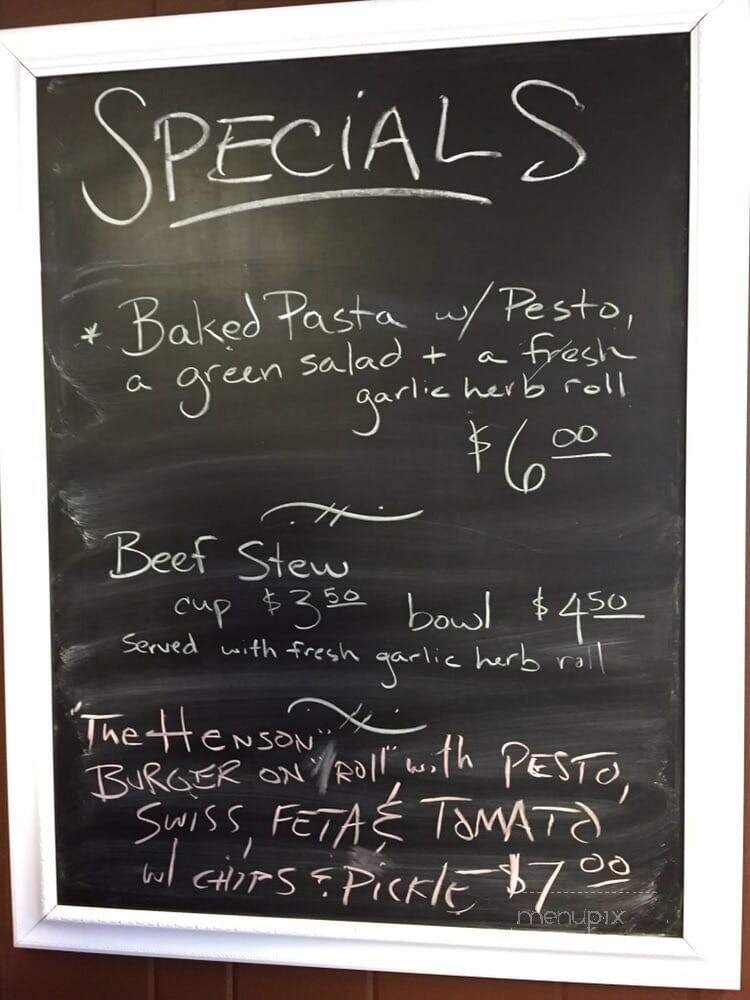 SPECIALS
* Baked Pasta w/ Pesto,
a green salad + a fresh
garlic herb roll
$6 00
Beef Stew
cup $3 50 bowl $4 50
Served with fresh garlic herb roll
"The HENSON"
BURGER ON "roll" with PESTO,
SWISS, FETA & TOMATO
w/ CHIPS & PICKLE $7 00
menupix